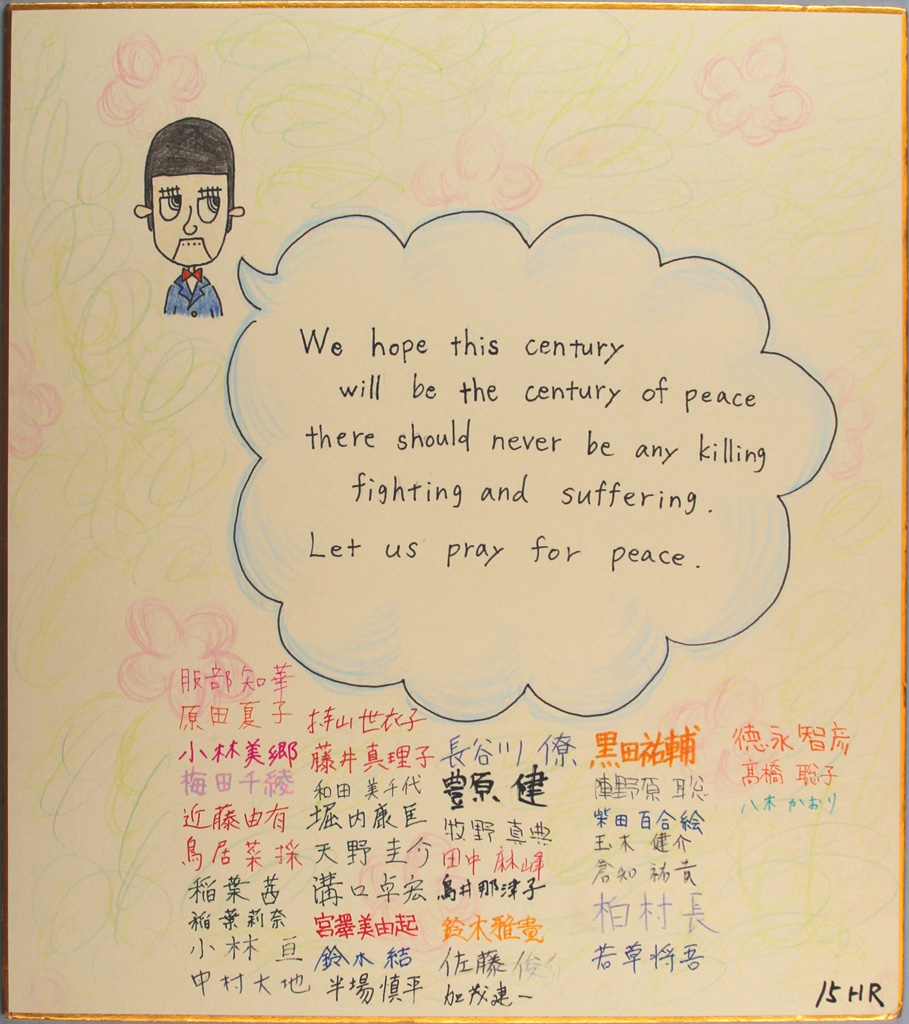 We hope this century
will be the century of peace
there should never be any killing
fighting and suffering.
Let us pray for peace.
服部知華
原田夏子
小林美郷
梅田千綾
近藤由有
鳥居菜採
稲葉茜
稲葉莉奈
小林亘
中村大地
持山世衣子
藤井真理子
和田美千代
堀内康匡
天野圭介
溝口卓宏
宮澤美由起
鈴木結
半場慎平
長谷川僚
豊原健
牧野真典
田中麻峰
鳥井那津子
鈴木雅貴
佐藤俊介
加茂建一
黒田祐輔
陣野原聡
柴田百合絵
玉木健介
倉知祐貴
柏村長
若草将吾
徳永智彦
髙橋聡子
八木かおり
15HR